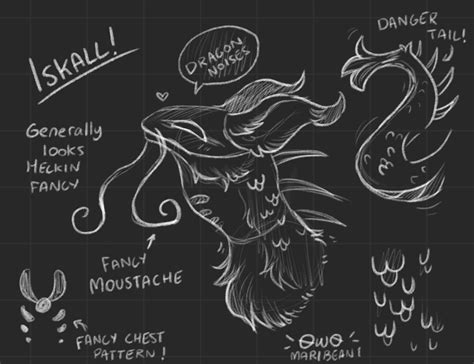 ISKALL!
DRAGON
NOISES
DANGER
TAIL!
Generally
looks
HECKIN
FANCY
FANCY
MOUSTACHE
FANCY CHEST
PATTERN!
OwO
MARIBEAN!